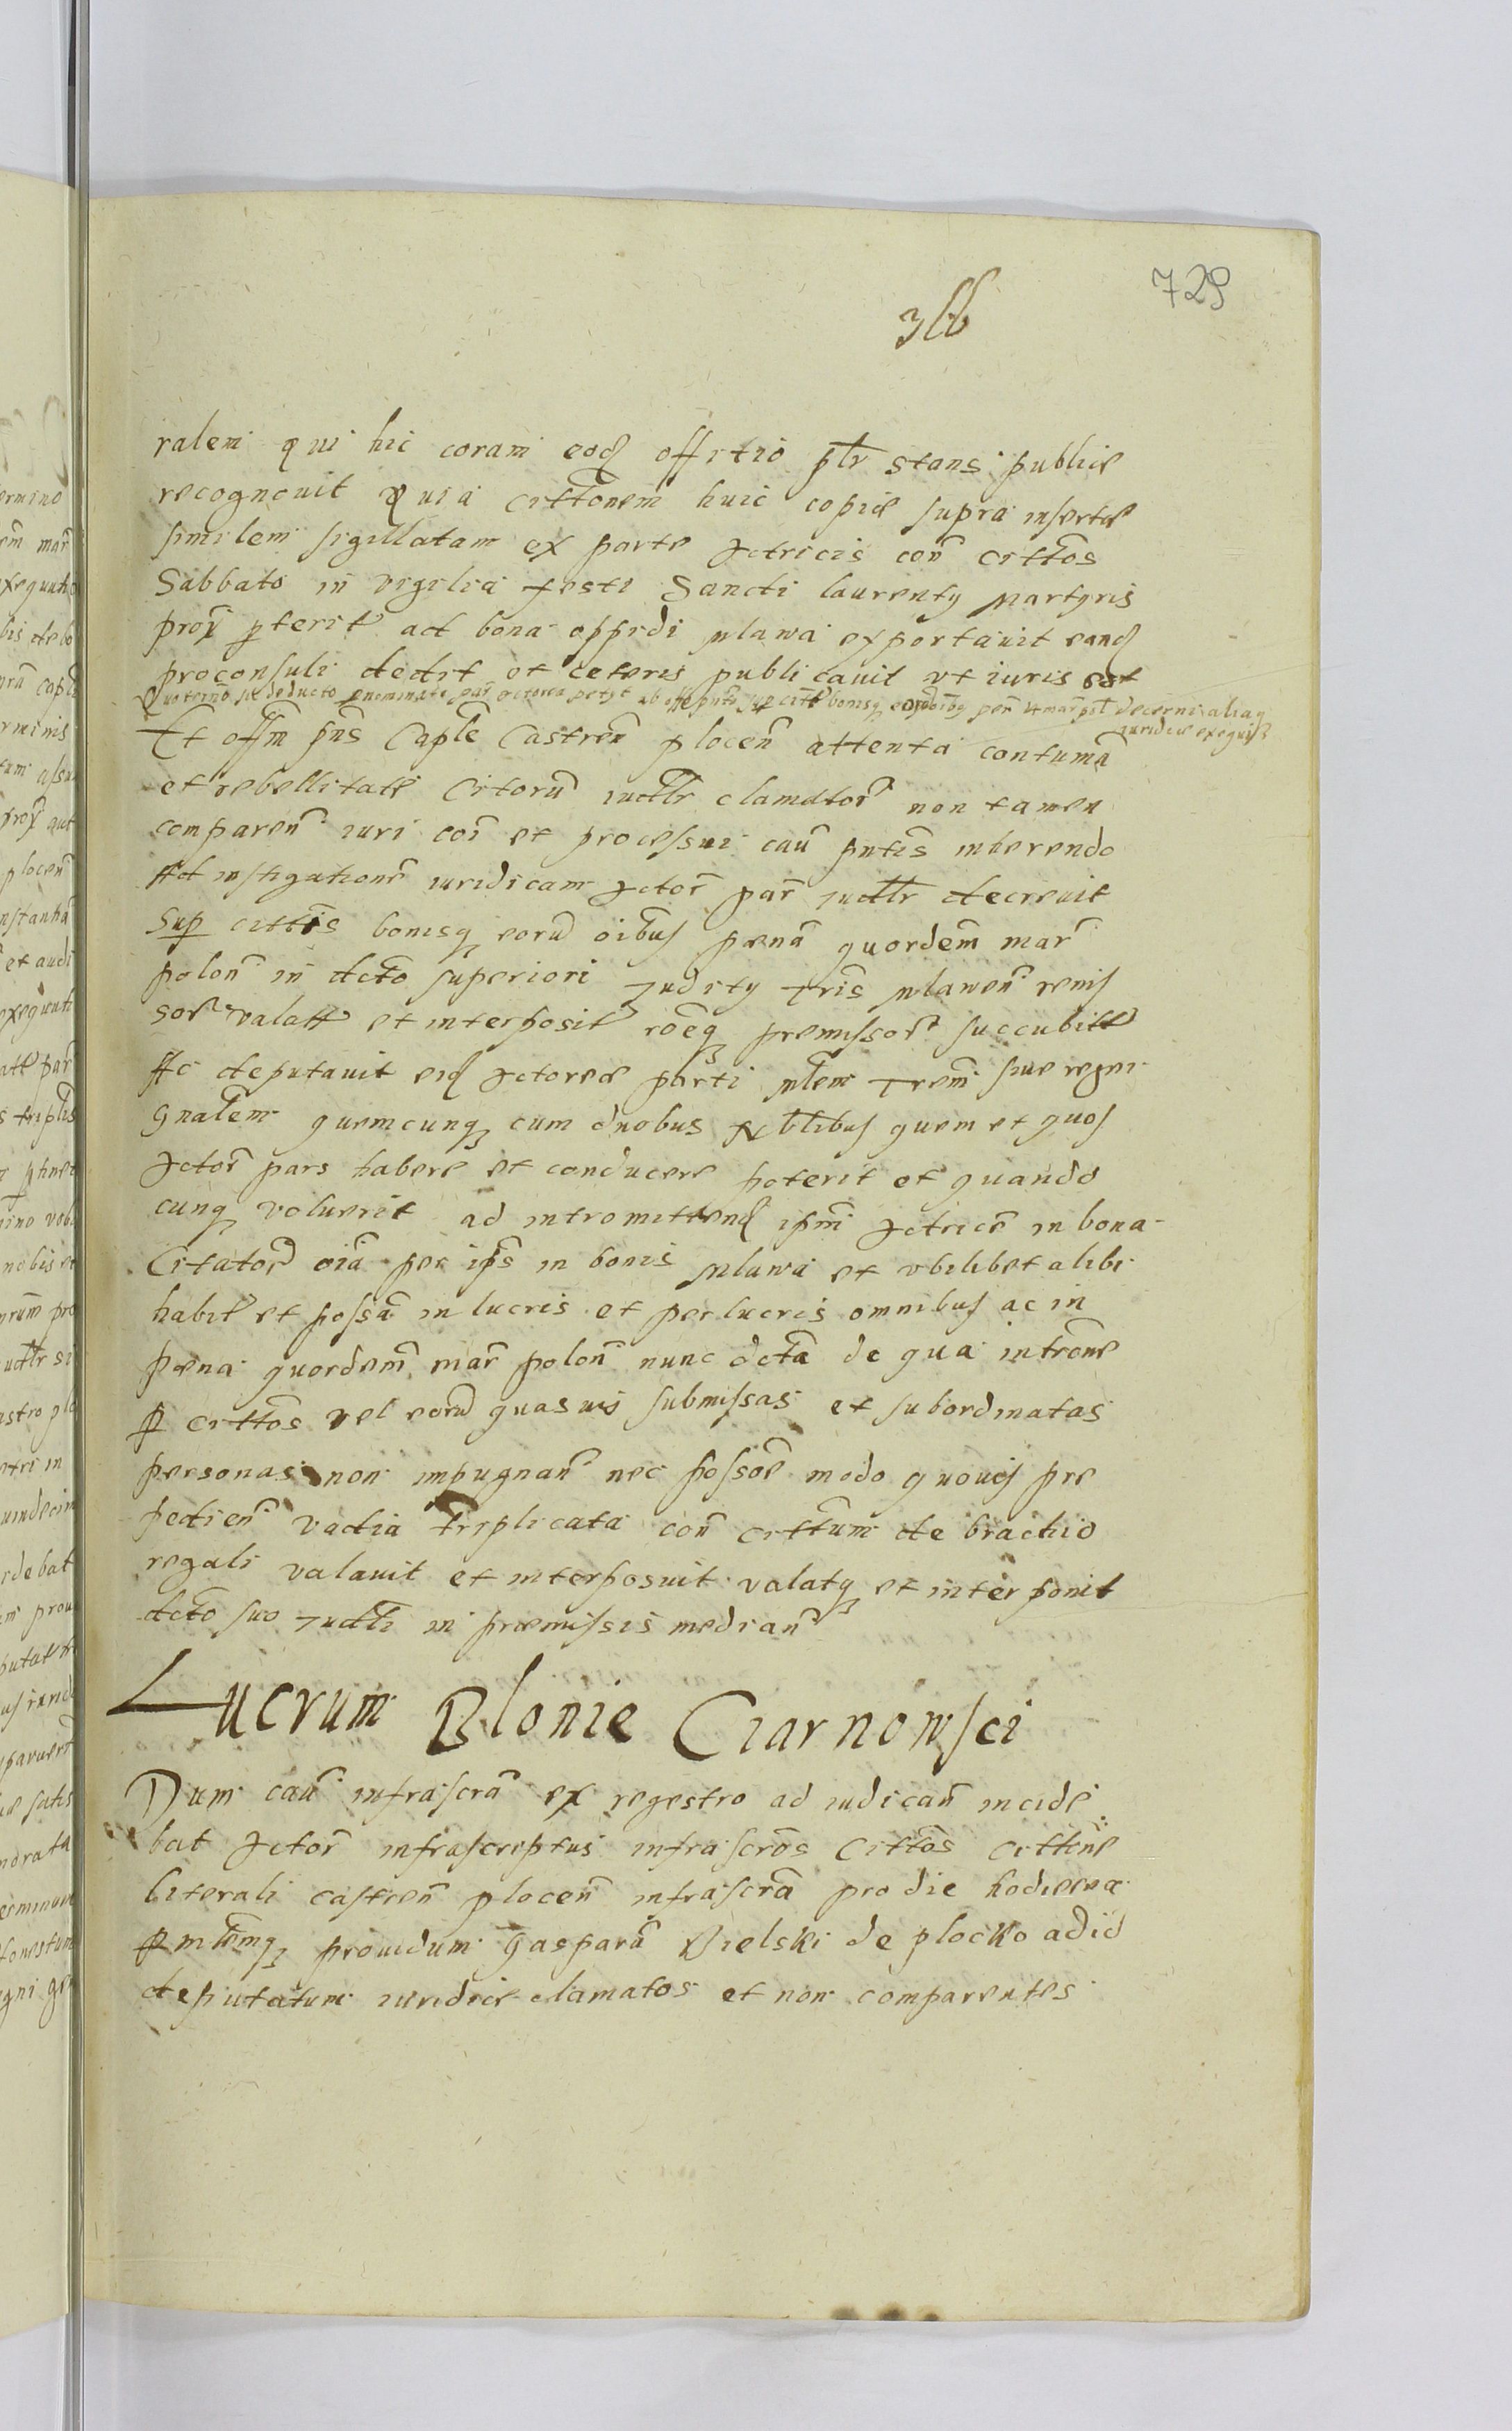 729
ralem qui hic coram eodꝫ offitio pltr stans publice
recognouit quia cittonem huic copie supra inserte
similem sigillatam ex parte Actricis con cittos
Sabbato in vigilia festi Sancti laurenty Martyris
prox pterit ad bona oppidi Mlawa exportauit eandꝫ
proconsuli dedit et ceteris publicauit vt iuris est
Quo termino sic deducto pars actorea petyt decerni aliaqꝫ
iuridice exequi
Et offm pns Caple Castren plocen attenta contuma
et rebellitate Citoru iudtlr clamator non tamen
comparen iuri coi et processui cau pntis inherendo
Ad instigatione iuridicam Actor par iudtlr decreuit
Sup cittis bonisqꝫ eoru oibus pena quordem mar
polon in dcto superiori Judity tris Mlawen remis
sor valatt et interposit roeqꝫ premissor succubitt
Ac deputauit eidꝫ Actoree parti Mlem trem siue regni
gnalem quemcunqꝫ cum duobus Nblibus quem et quos
Actor pars habere et conducere poterit et quando
cunqꝫ voluerit ad intromittendꝫ ipm Actrice in bona
Citator oia per ips in bonis Mlawa et vbilibet alibi
habit et possa in lucris et per lucris omnibus ac in
pena quordem mar polon nunc dcta de qua introne
P cittos vel eoru quasuis submissas et subordinatas
personas non impugnan nec possoe modo quouis pre
pedien vadia triplicata con cittum de brachio
regali valauit et interposuit valatqꝫ et interponit
dcto suo Judtli in premissis median
Lucrum Blonie Ciarnowsci
Dum cau infrascra ex regestro ad iudican incide
bat Actor infrascriptus infrascros Cittos cittone
literali castren plocen infrascra pro die hodierna
P mltemqꝫ prouidum Gasparu Bielski de plocko ad id
deputatum iuridice clamatos et non comparentes